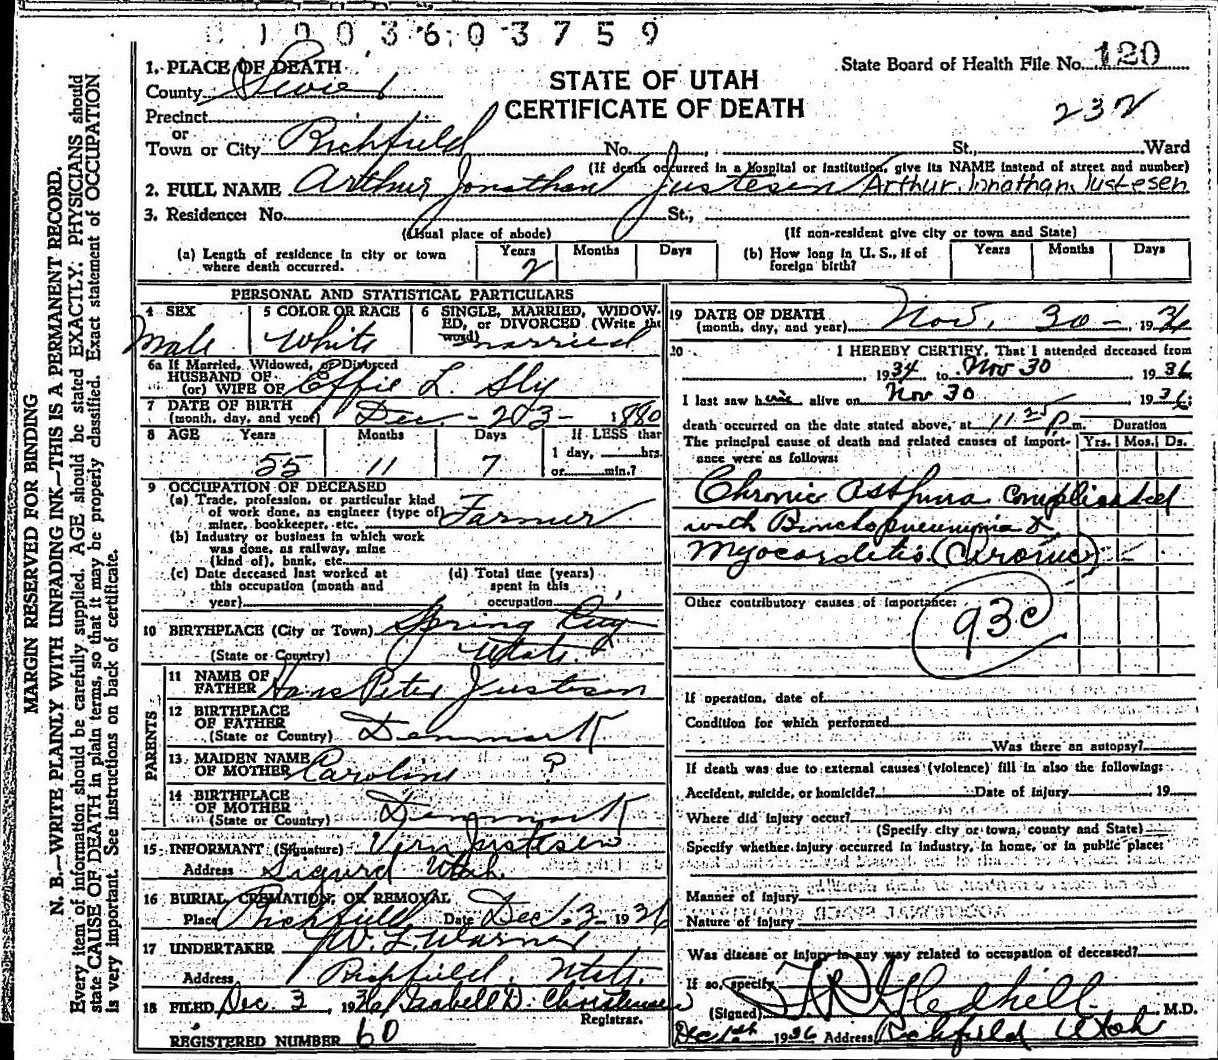 1003603759
1. PLACE OF DEATH
County Sevier
STATE OF UTAH
CERTIFICATE OF DEATH
State Board of Health File No. 120
232
Precinct
or
Town or City Richfield No. St. Ward
(If death occurred in a hospital or institution, give its NAME instead of street and number)
2. FULL NAME Arthur Jonathan Justesen Arthur Jonathan Justesen
3. Residence: No. St.,
(Usual place of abode) (If non-resident give city or town and State)
(a) Length of residence in city or town where death occurred. Years 2 Months Days
(b) How long in U. S., if of foreign birth? Years Months Days
PERSONAL AND STATISTICAL PARTICULARS
4 SEX Male
5 COLOR OR RACE White
6 SINGLE, MARRIED, WIDOWED, or DIVORCED (Write the word) married
6a If Married, Widowed, or Divorced
HUSBAND OF
(or) WIFE OF Effie L. Sly
7 DATE OF BIRTH
(month, day, and year) Dec - 203 - 1880
8 AGE Years 55 Months 11 Days 7 If LESS than 1 day, hrs. or min.?
9 OCCUPATION OF DECEASED
(a) Trade, profession, or particular kind
of work done, as engineer (type of)
miner, bookkeeper, etc. Farmer
(b) Industry or business in which work
was done, as railway, mine
(kind of), bank, etc.
(c) Date deceased last worked at
this occupation (month and
year)
(d) Total time (years)
spent in this
occupation
10 BIRTHPLACE (City or Town) Spring City
(State or Country) Utah.
PARENTS
11 NAME OF
FATHER Hans Peter Justesen
12 BIRTHPLACE
OF FATHER
(State or Country) Denmark
13. MAIDEN NAME
OF MOTHER Caroline ?
14 BIRTHPLACE
OF MOTHER
(State or Country) Denmark
15 INFORMANT (Signature) Vern Justesen
Address Sigurd Utah
16 BURIAL, CREMATION, OR REMOVAL
Place Richfield Date Dec. 3 1936
17 UNDERTAKER W. L. Warner
Address Richfield, Utah.
18 FILED Dec 3, 1936 Isabell D. Christensen
Registrar.
REGISTERED NUMBER 60
19 DATE OF DEATH
(month, day, and year) Nov. 30 - 1936
20 I HEREBY CERTIFY, That I attended deceased from
1934 to Nov 30 1936
I last saw him alive on Nov 30 1936;
death occurred on the date stated above, at 11 25 P m. Duration
The principal cause of death and related causes of importance were as follows: Yrs. Mos. Ds.
Chronic Asthma complicated
with Bronchopneumonia &
Myocarditis (Chronic)
Other contributory causes of importance:
93c
If operation, date of
Condition for which performed
Was there an autopsy?
If death was due to external causes (violence) fill in also the following:
Accident, suicide, or homicide? Date of injury 19
Where did injury occur?
(Specify city or town, county and State)
Specify whether injury occurred in industry, in home, or in public place:
Manner of injury
Nature of injury
Was disease or injury in any way related to occupation of deceased?
If so, specify
(Signed) M.D.
Dec 1st 1936 Address Richfield Utah
MARGIN RESERVED FOR BINDING
N. B.—WRITE PLAINLY WITH UNFADING INK—THIS IS A PERMANENT RECORD.
Every item of information should be carefully supplied. AGE should be stated EXACTLY. PHYSICIANS should
state CAUSE OF DEATH in plain terms, so that it may be properly classified. Exact statement of OCCUPATION
is very important. See instructions on back of certificate.